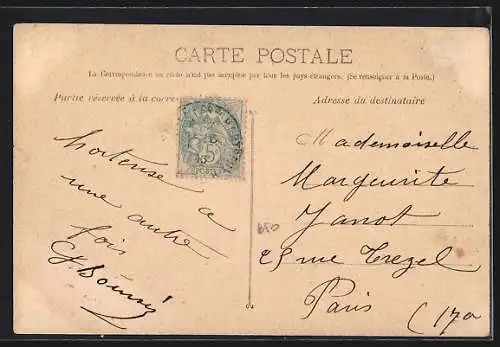 CARTE POSTALE
La Correspondance au recto n'est pas acceptée par tous les pays étrangers. (Se renseigner à la Poste.)
Partie réservée à la corres
Adresse du destinataire
5
POSTES
Hortense a
une autre
fois
Mademoiselle
Marguerite
Janot
25 rue Trezel
Paris
(17e